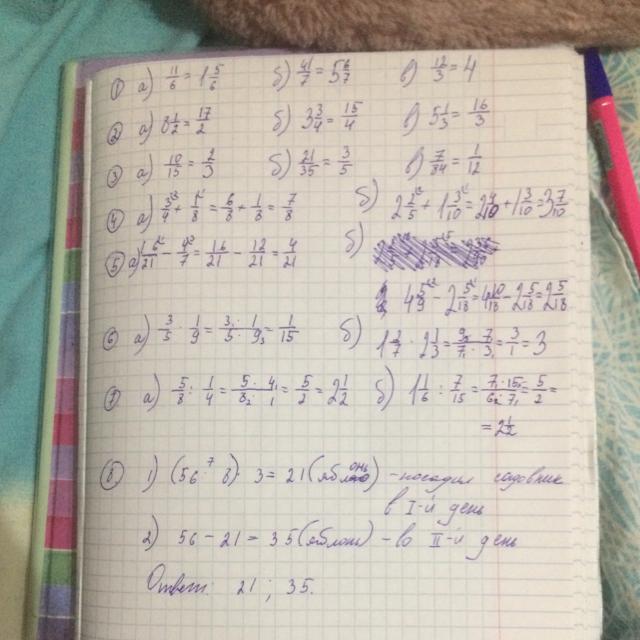 ① а) 11/6 = 1 5/6 б) 41/7 = 5 6/7 в) 12/3 = 4
② а) 8 1/2 = 17/2 б) 3 3/4 = 15/4 в) 5 1/3 = 16/3
③ а) 10/15 = 2/3 б) 21/35 = 3/5 в) 7/84 = 1/12
④ а) 3/4 + 1/8 = 6/8 + 1/8 = 7/8 б) 2 2/5 + 1 3/10 = 2 4/10 + 1 3/10 = 3 7/10
⑤ а) 16/21 - 4/7 = 16/21 - 12/21 = 4/21 б)
4 5/9 - 2 5/18 = 4 10/18 - 2 5/18 = 2 5/18
⑥ а) 3/5 · 1/9 = 3 · 1/5 · 9 = 1/15 б) 1 2/7 · 2 1/3 = 9 · 7/7 · 3 = 3/1 = 3
⑦ а) 5/8 : 1/4 = 5 · 4/8 · 1 = 5/2 = 2 1/2 б) 1 1/6 : 7/15 = 7 · 15/6 · 7 = 5/2 =
= 2 1/2
⑧ 1) (56 : 8) · 3 = 21 (яблонь) - посадил садовник
в I-й день
2) 56 - 21 = 35 (яблонь) - во II-й день
Ответ: 21 ; 35.